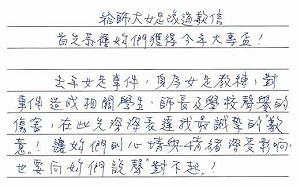 給師大女足隊道歉信
首先恭禧妳們獲得今年大專盃！
去年女足事件，身為女足教練，對
事件造成相關學生、師長及學校聲譽的
傷害，在此先深深表達我最誠摯的"歉
意"！讓妳們的心情與情緒深受影响，
也要向妳們說聲"對不起"！